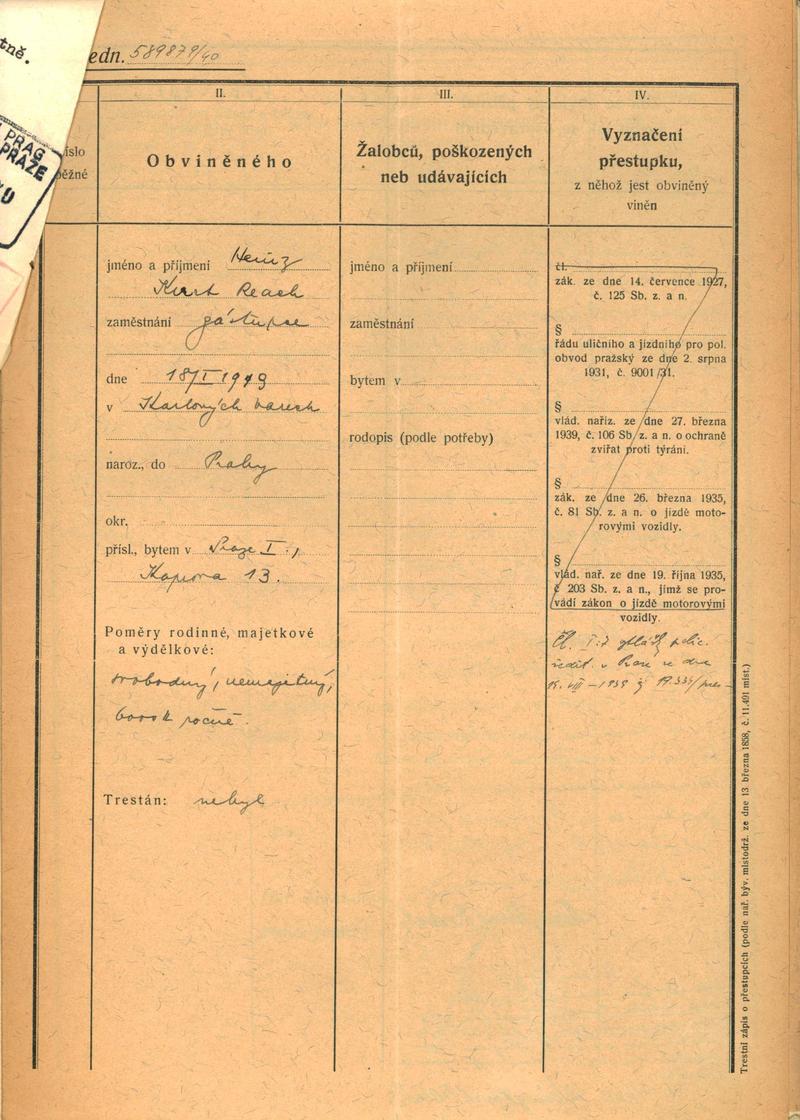 tně.
PRAG
PRAZE
edn. 589879/40
íslo
ěžné
II.
Obviněného
jméno a příjmení Heinz
Kurt Reach
zaměstnání zástupce
dne 18/I 1913
v Karlových Varech
naroz., do Prahy
okr.
přísl., bytem v Praze I.,
Kaprova 13.
Poměry rodinné, majetkové
a výdělkové:
svobodný, nemajetný,
6000 K ročně.
Trestán: nebyl
III.
Žalobců, poškozených
neb udávajících
jméno a příjmení
zaměstnání
bytem v
rodopis (podle potřeby)
IV.
Vyznačení
přestupku,
z něhož jest obviněný
viněn
čl.
zák. ze dne 14. července 1927,
č. 125 Sb. z. a n.
§
řádu uličního a jízdního pro pol.
obvod pražský ze dne 2. srpna
1931, č. 9001/31.
§
vlád. naříz. ze dne 27. března
1939, č. 106 Sb. z. a n. o ochraně
zvířat proti týrání.
§
zák. ze dne 26. března 1935,
č. 81 Sb. z. a n. o jízdě moto-
rovými vozidly.
§
vlád. nař. ze dne 19. října 1935,
č 203 Sb. z. a n., jímž se pro-
vádí zákon o jízdě motorovými
vozidly.
Čl. I:2 vyhlášky polic.
ředit. v Praze ze dne
VIII – 1939
Trestní zápis o přestupcích (podle nař. býv. místodrž. ze dne 13. března 1858, č. 11.491 míst.)